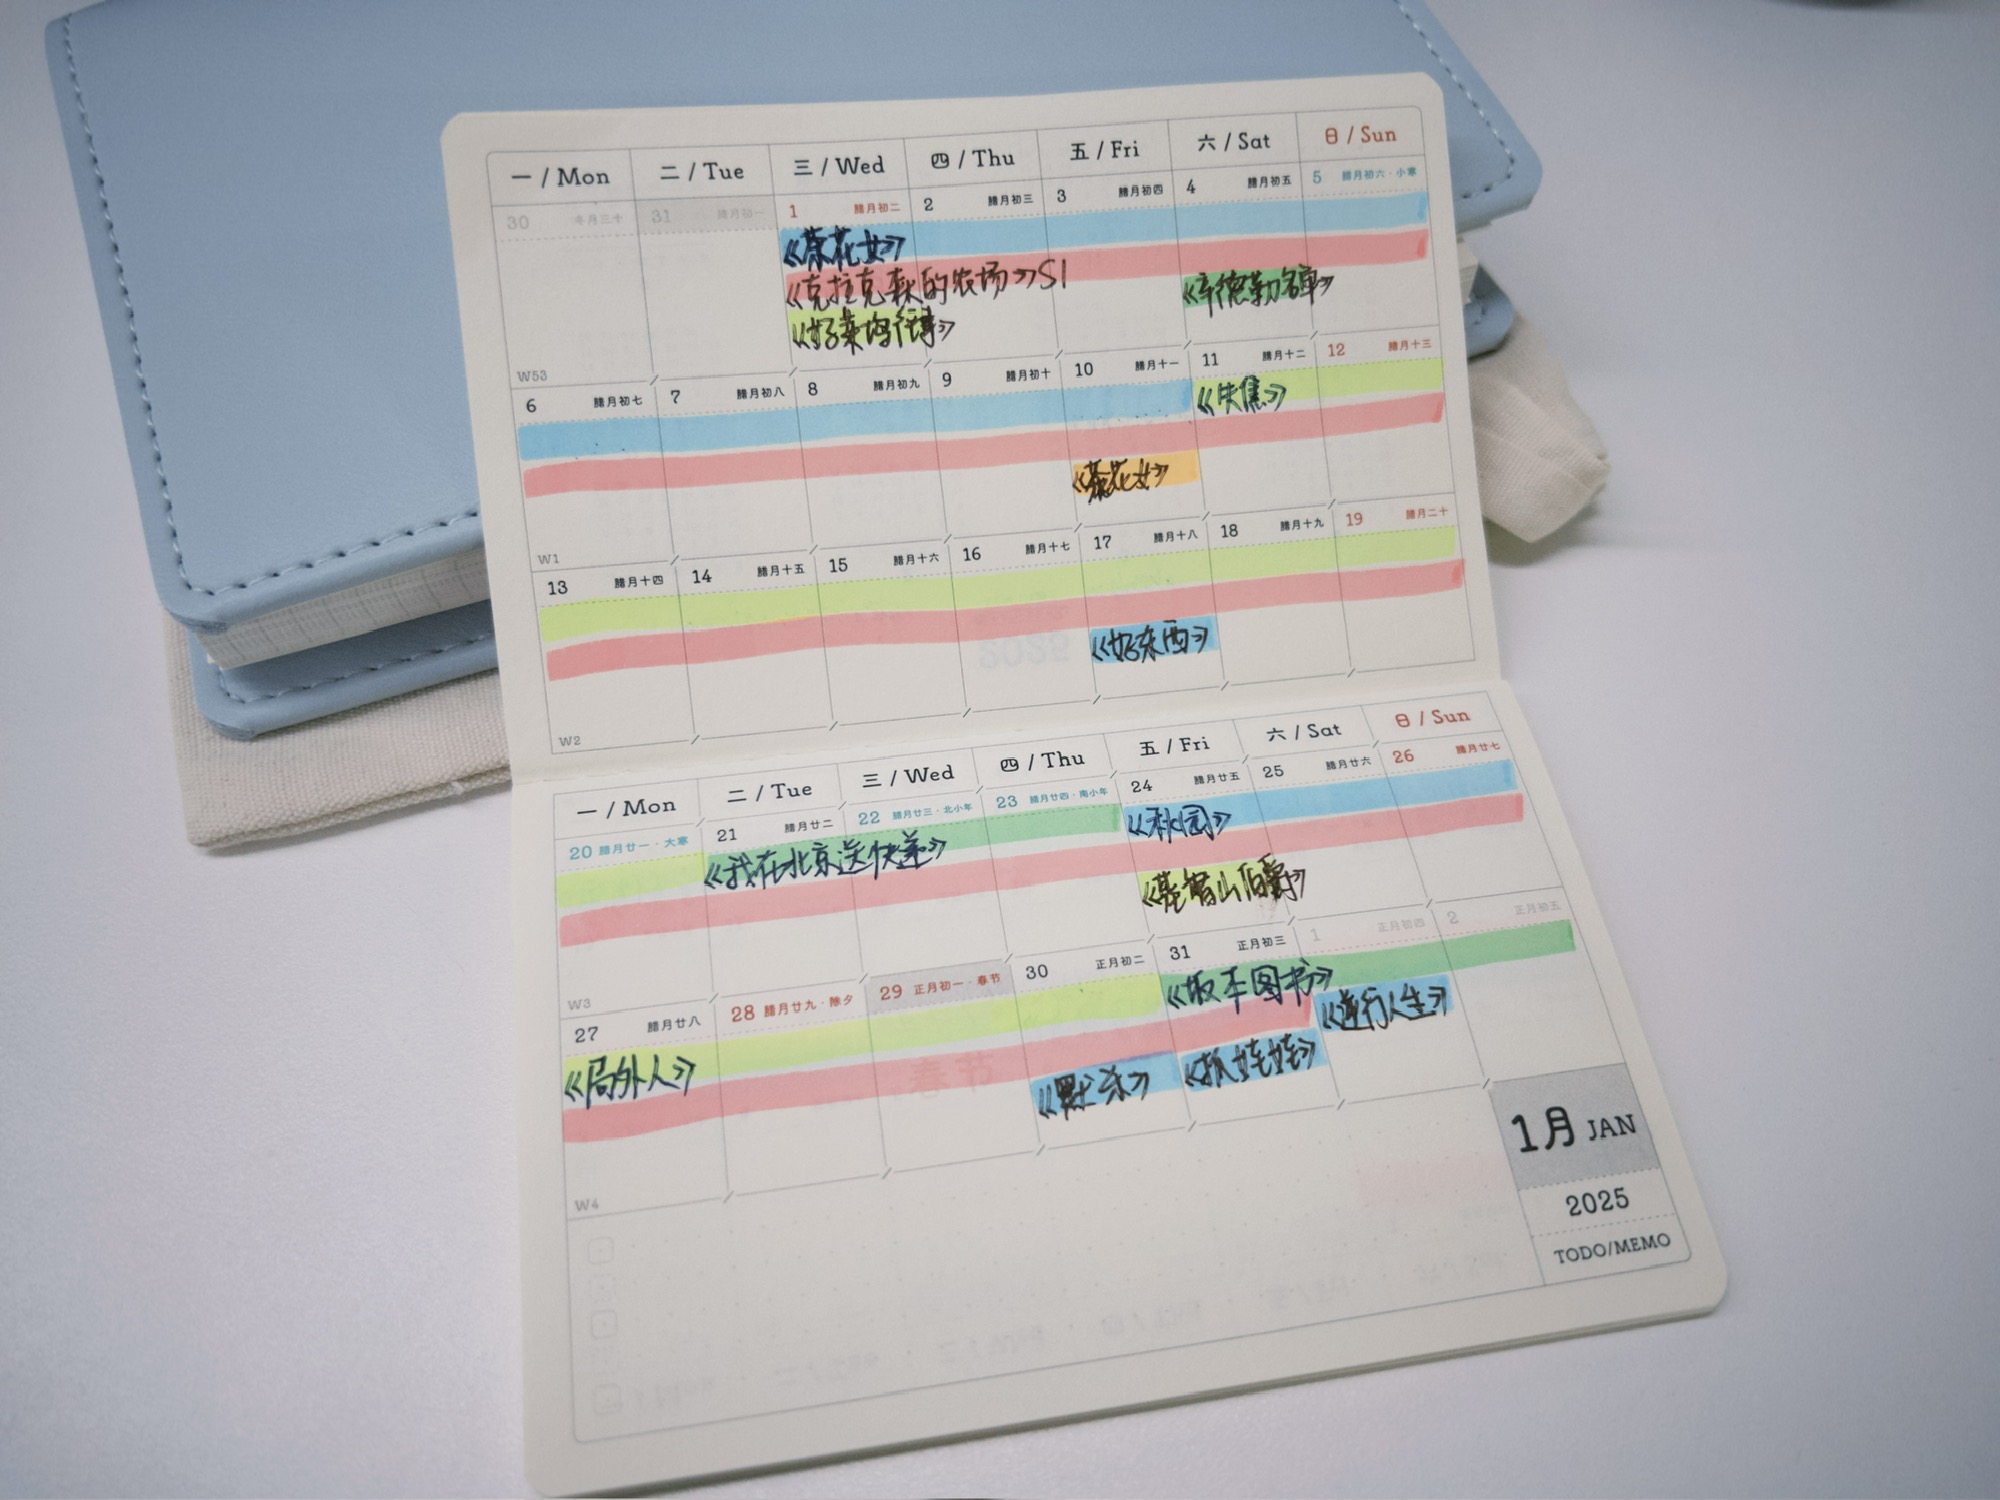 一 / Mon 二 / Tue 三 / Wed 四 / Thu 五 / Fri 六 / Sat 日 / Sun
30 冬月三十 31 腊月初一 1 腊月初二 2 腊月初三 3 腊月初四 4 腊月初五 5 腊月初六·小寒
《茶花女》
《克拉克森的农场》S1
《辛德勒名单》
《好莱坞往事》
W53
6 腊月初七 7 腊月初八 8 腊月初九 9 腊月初十 10 腊月十一 11 腊月十二 12 腊月十三
《失焦》
《茶花女》
W1
13 腊月十四 14 腊月十五 15 腊月十六 16 腊月十七 17 腊月十八 18 腊月十九 19 腊月二十
《好东西》
W2
一 / Mon 二 / Tue 三 / Wed 四 / Thu 五 / Fri 六 / Sat 日 / Sun
20 腊月廿一·大寒 21 腊月廿二 22 腊月廿三·北小年 23 腊月廿四·南小年 24 腊月廿五 25 腊月廿六 26 腊月廿七
《我在北京送快递》
《秋园》
《基督山伯爵》
W3
27 腊月廿八 28 腊月廿九·除夕 29 正月初一·春节 30 正月初二 31 正月初三 1 正月初四 2 正月初五
《局外人》
《坂本图书》
《逆行人生》
《默杀》
《抓娃娃》
W4
1月 JAN
2025
TODO/MEMO